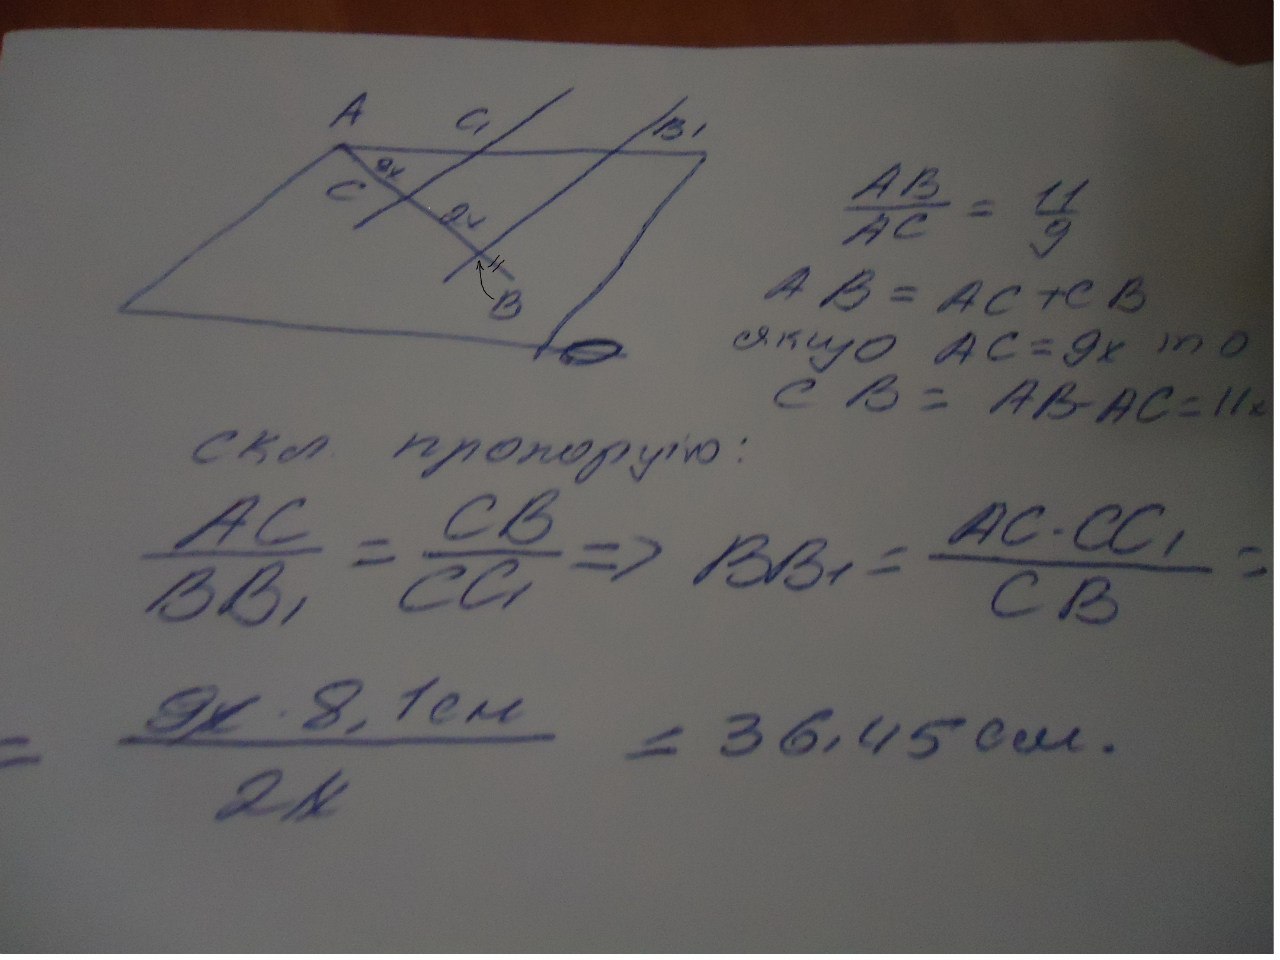 A
C₁
B₁
9x
C
2x
B
AB/AC = 11/9
AB = AC + CB
якщо AC = 9x то
CB = AB - AC = 11x
скл. пропорцію:
AC/BB₁ = CB/CC₁ => BB₁ = AC·CC₁/CB =
= 9x · 8,1см / 2x = 36,45 см.